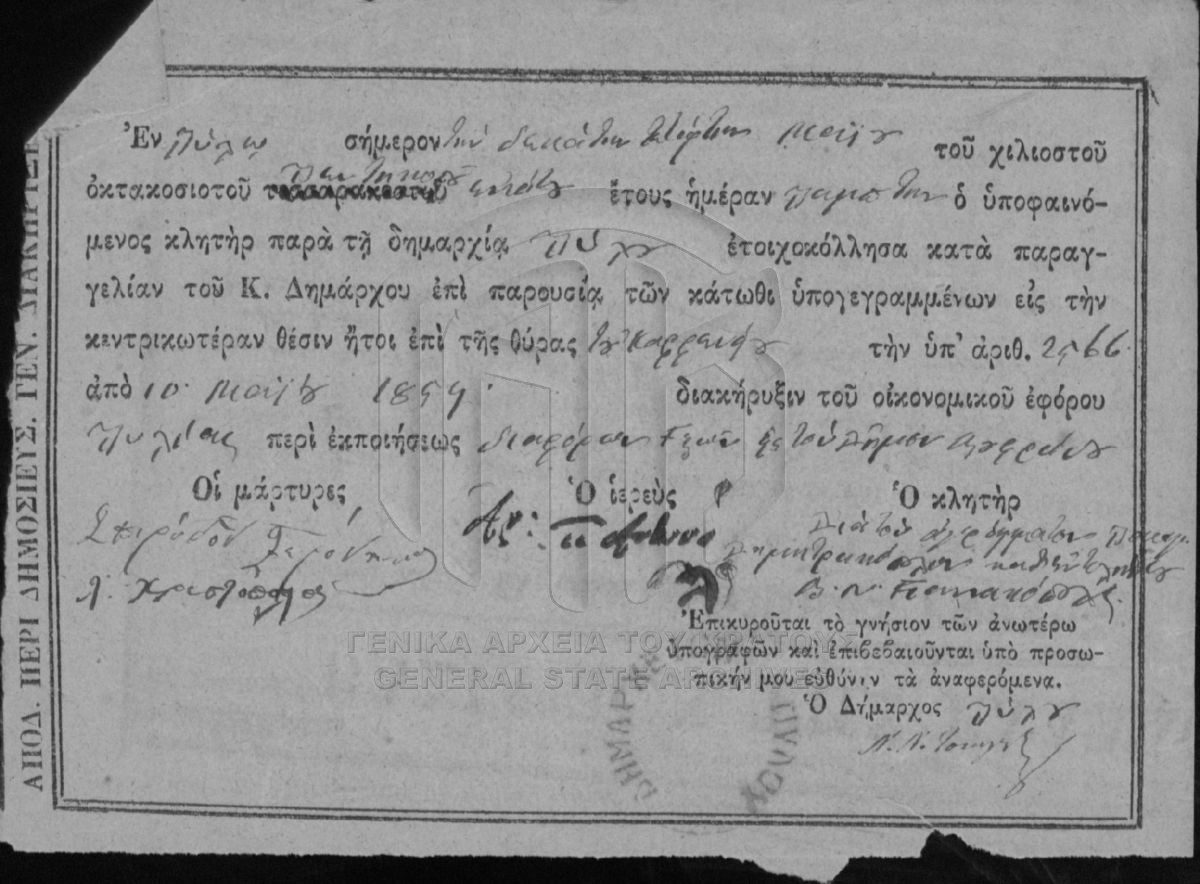 Ἐν Πύλῳ σήμερον τὴν δεκάτην τετάρτην Μαΐου τοῦ χιλιοστοῦ
ὀκτακοσιοτοῦ τεσσαρακοστοῦ πεντηκοστοῦ ἐννάτου ἔτους ἡμέραν πέμπτην ὁ ὑποφαινό-
μενος κλητὴρ παρὰ τῇ δημαρχίᾳ Πύλου ἐτοιχοκόλλησα κατὰ παραγ-
γελίαν τοῦ Κ. Δημάρχου ἐπὶ παρουσίᾳ τῶν κάτωθι ὑπογεγραμμένων εἰς τὴν
κεντρικωτέραν θέσιν ἤτοι ἐπὶ τῆς θύρας τοῦ καφφενείου τὴν ὑπ' ἀριθ. 2566.
ἀπὸ 10 Μαΐου 1859. διακήρυξιν τοῦ οἰκονομικοῦ ἐφόρου
Πυλίας περὶ ἐκποιήσεως διαφόρων τὸν δῆμον
Οἱ μάρτυρες Ὁ ἱερεὺς Ὁ κλητὴρ
Διὰ τὸν ἀγράμματον
Χριστόπουλος
Ἐπικυροῦται τὸ γνήσιον τῶν ἀνωτέρω
ὑπογραφῶν καὶ ἐπιβεβαιοῦνται ὑπὸ προσω-
πικήν μου εὐθύνην τὰ ἀναφερόμενα.
Ὁ Δήμαρχος Πύλου
ΑΠΟΔ. ΠΕΡΙ ΔΗΜΟΣΙΕΥΣ. ΓΕΝ. ΔΙΑΚΗΡΥΞΕ
ΓΕΝΙΚΑ ΑΡΧΕΙΑ ΤΟΥ ΚΡΑΤΟΥΣ
GENERAL STATE ARCHIVES